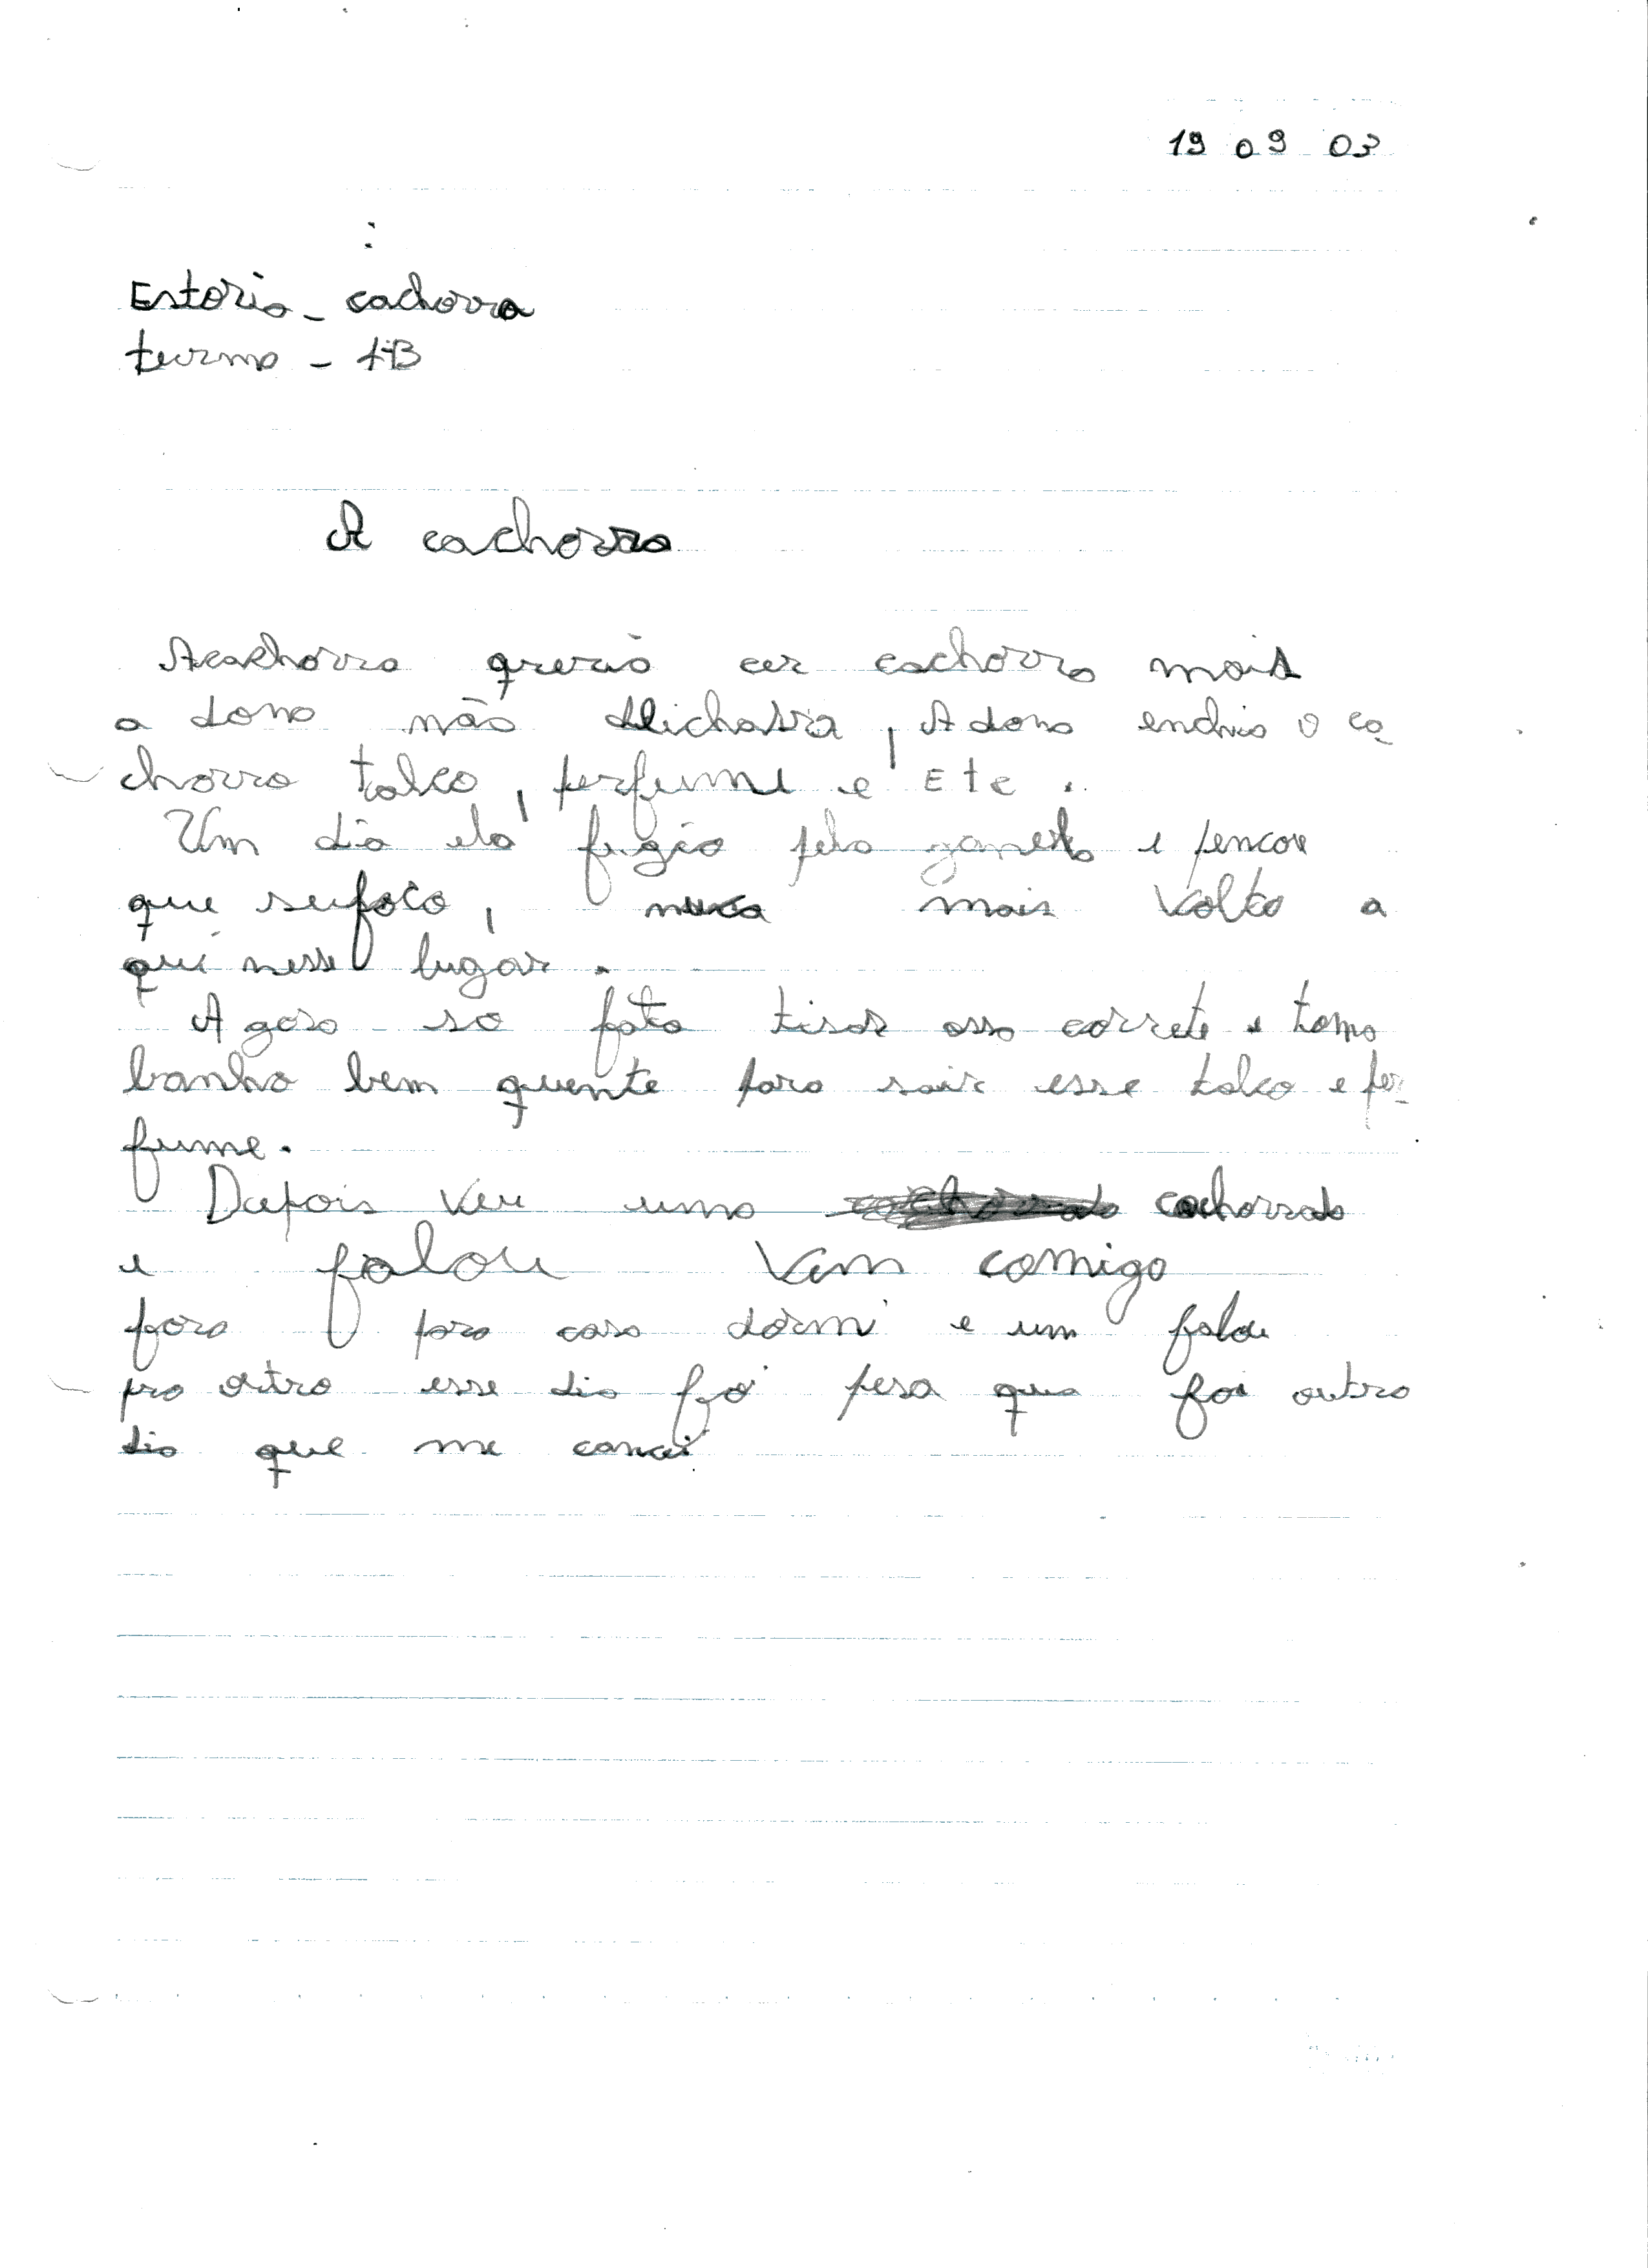 19 09 03
Estoria - cachorra
turma - 1ªB
A cachorra
Acachorra queria cer cachorro mais
a dona não deichava, A dona enchia o ca-
chorro talco, perfume e Etc.
Um dia ela fugio pela janela e pencou
que sufoco, nunca mais volto a
qui nesse lugar.
A gora so fata tirar assa correte e toma
banho bem quente para sair esse talco e per-
fume.
Depois veu uma cachorrada
e falou vem comigo
fora para casa dormi e um falou
pro outro esse dia foi pesa que foi outro
dia que me cancei